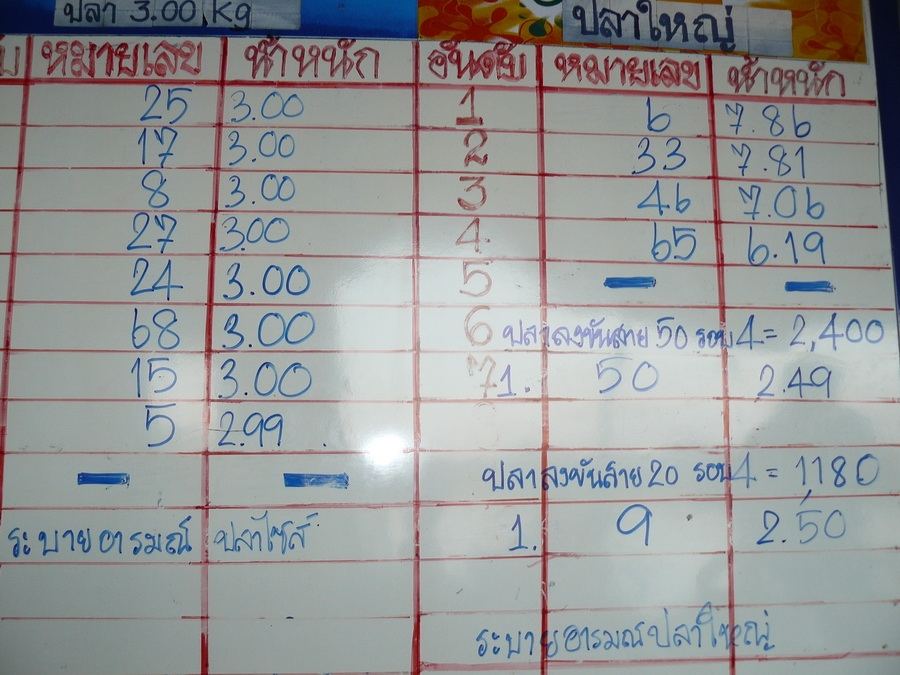 ปลา 3.00 Kg
หมายเลข น้ำหนัก
25 3.00
17 3.00
8 3.00
27 3.00
24 3.00
68 3.00
15 3.00
5 2.99
- -
ระบายอารมณ์ ปลาไซส์
ปลาใหญ่
อันดับ หมายเลข น้ำหนัก
1 6 7.86
2 33 7.81
3 46 7.06
4 65 6.19
5 - -
6 ปลาลงขันสาย 50 รอบ 4 = 2,400
7 1. 50 2.49
ปลาลงขันสาย 20 รอบ 4 = 1180
1. 9 2.50
ระบายอารมณ์ปลาใหญ่